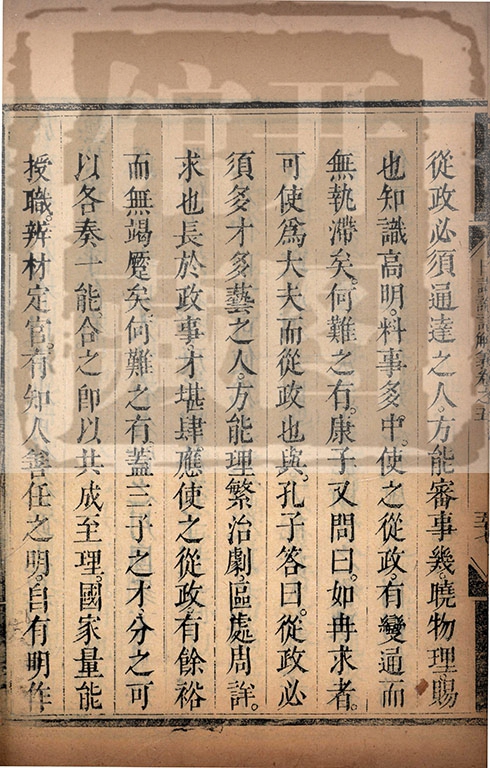 從政必須通達之人。方能審事幾。曉物理。賜
也知識高明。料事多中。使之從政。有變通而
無執滯矣。何難之有。康子又問曰。如冉求者。
可使爲大夫而從政也與。孔子答曰。從政必
須多才多藝之人。方能理繁治劇。區處周詳。
求也長於政事。才堪肆應。使之從政。有餘裕
而無竭蹷矣。何難之有。蓋三子之才。分之可
以各奏一能。合之卽以共成至理。國家量能
授職。辨材定官。有知人善任之明。自有明作